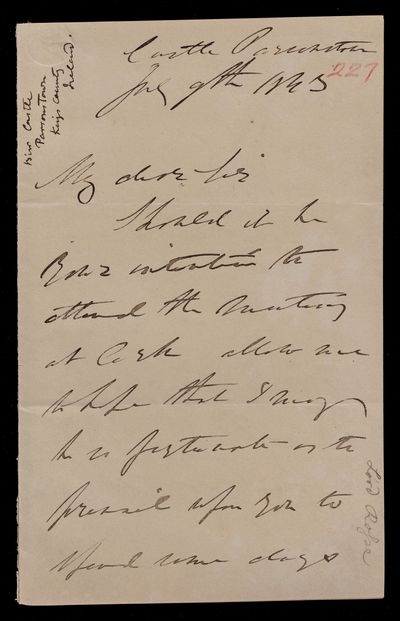 Castle Parsonstown
July 9th 1843
227
Birr Castle
Parsonstown
Kings County
Ireland.
My dear Sir
Should it be
your intention to
attend the meeting
at Cork allow me
to hope that I may
be so fortunate as to
prevail upon you to
spend some days
Lord Rosse